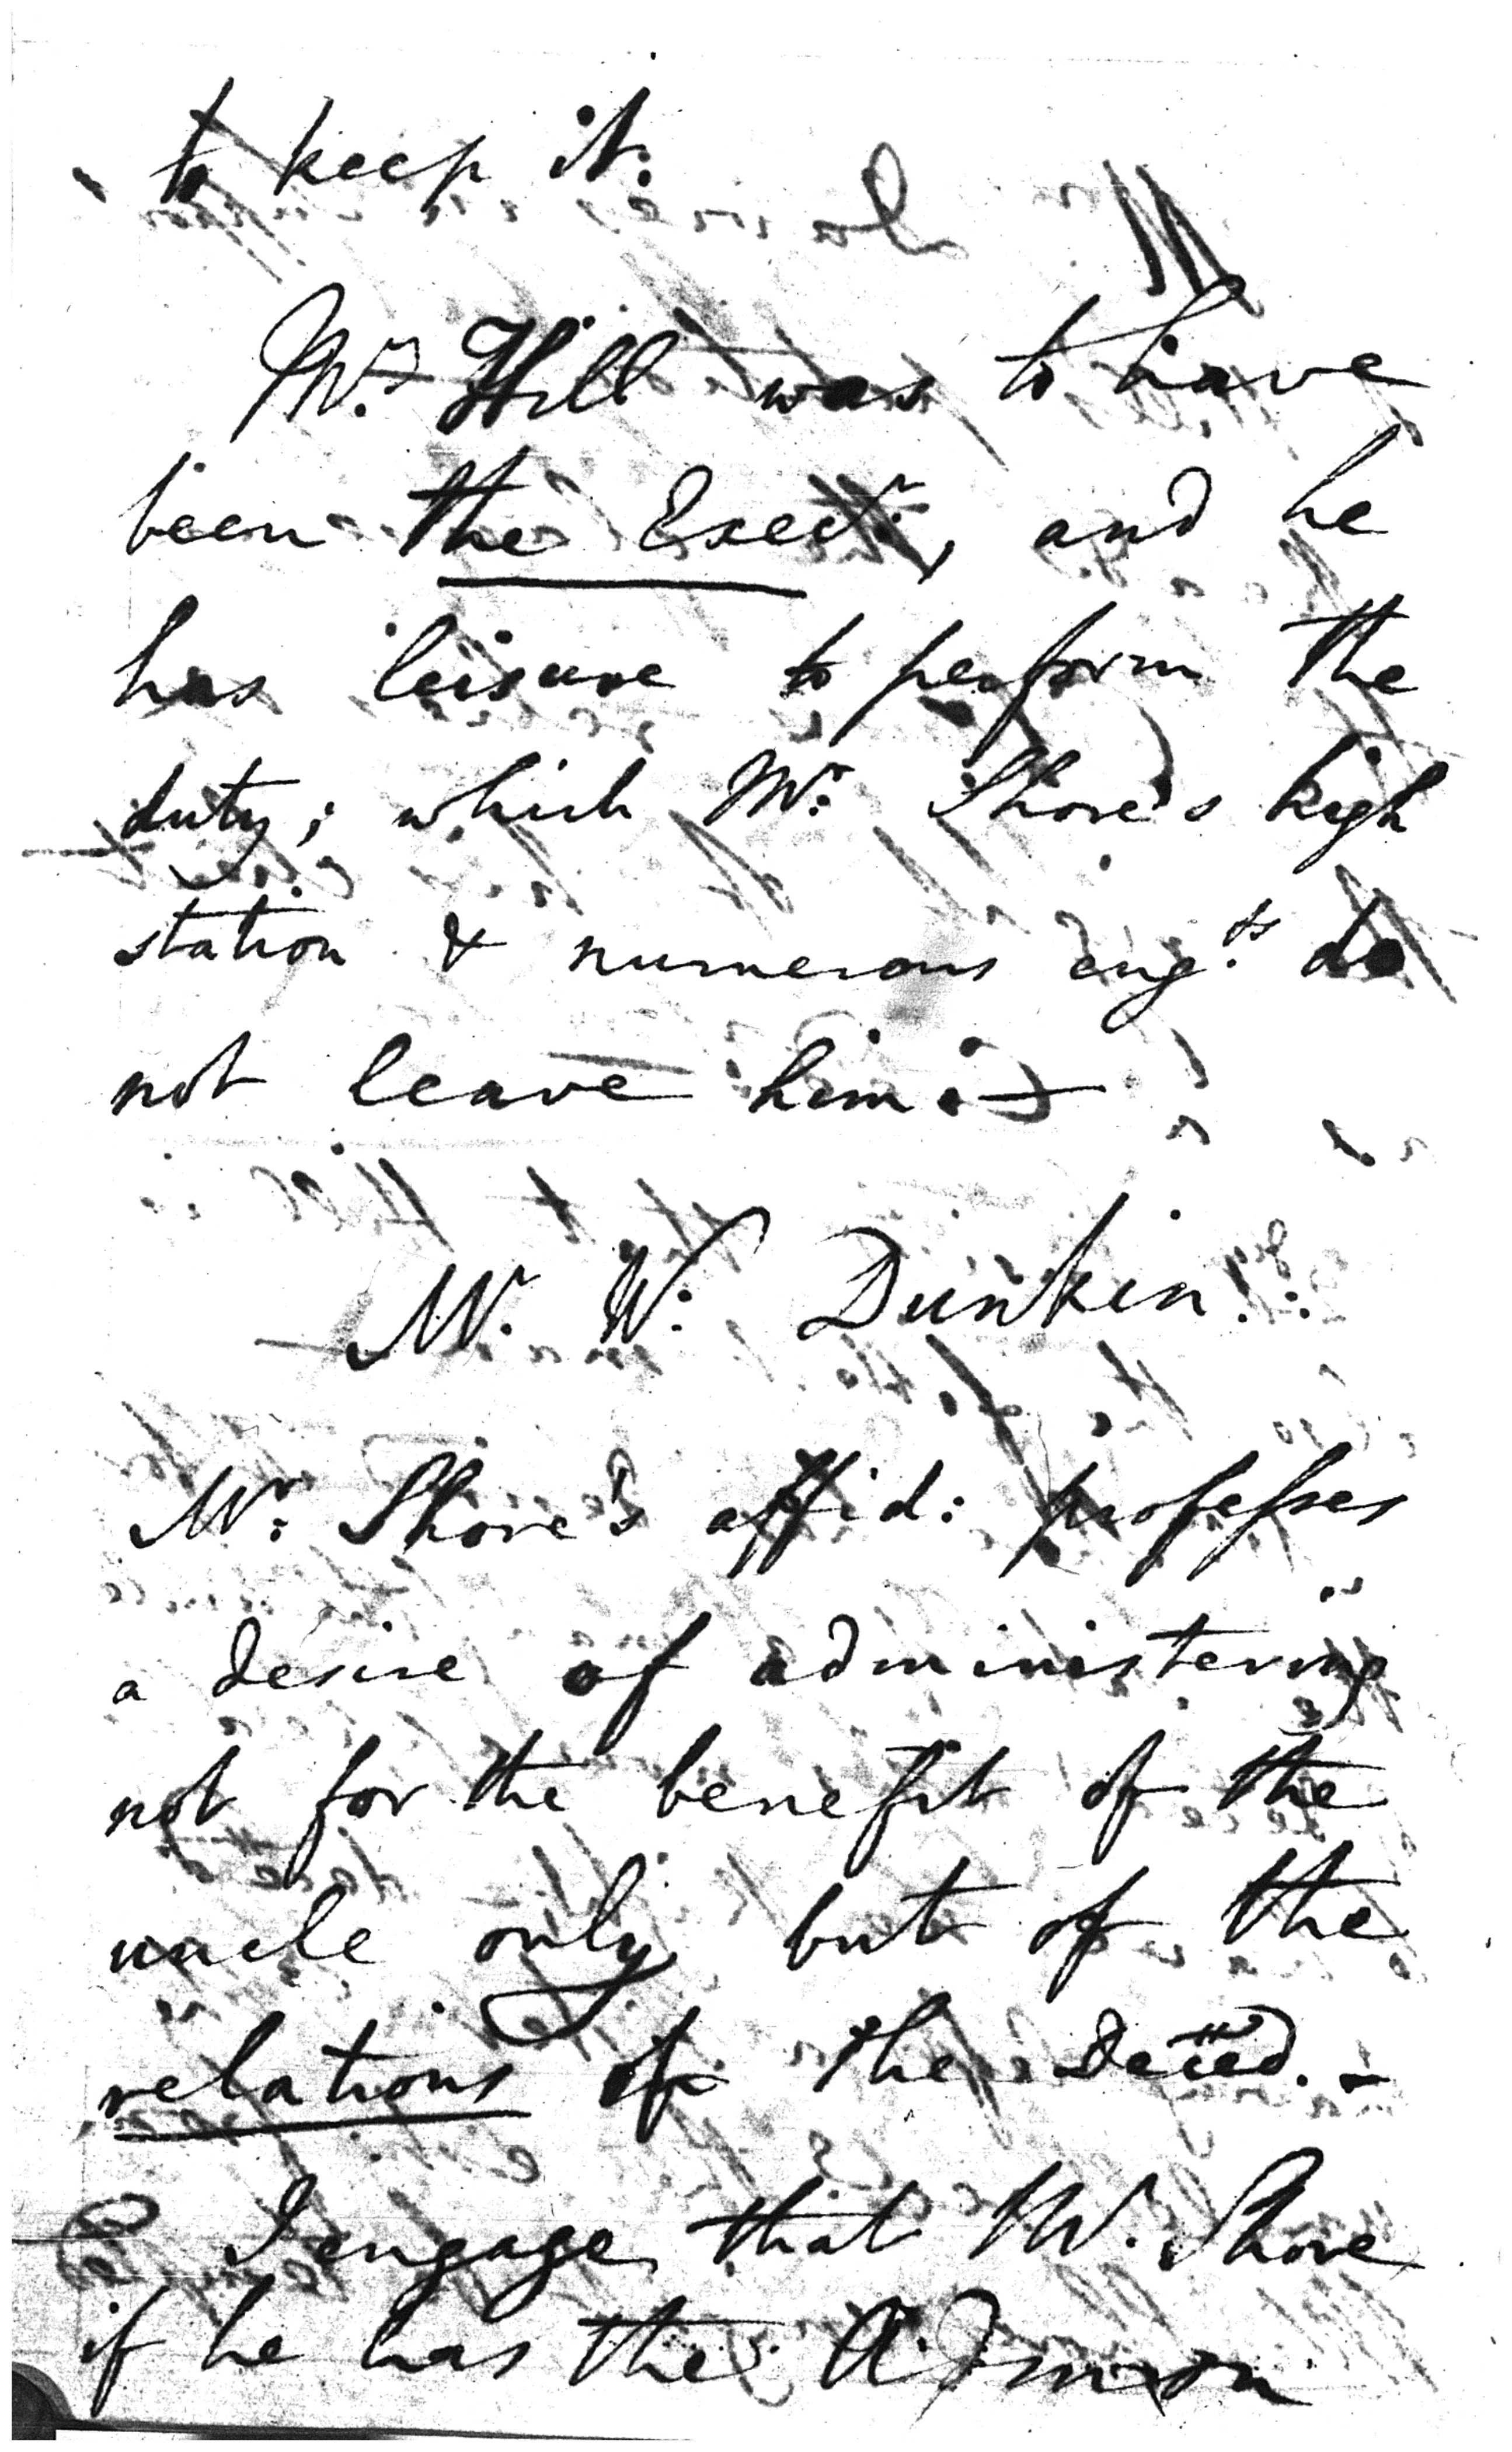 to keep it.
Mr. Hill was to have
been the Execr., and he
has leisure to perform the
duty; which Mr. Shore's high
station & numerous engts. do
not leave him. —
Mr. W. Dunkin.
Mr. Shore's affid: professes
a desire of administering
not for the benefit of the
uncle only but of the
relations of the Deced. –
I engage that Mr. Shore
if he has the Admon